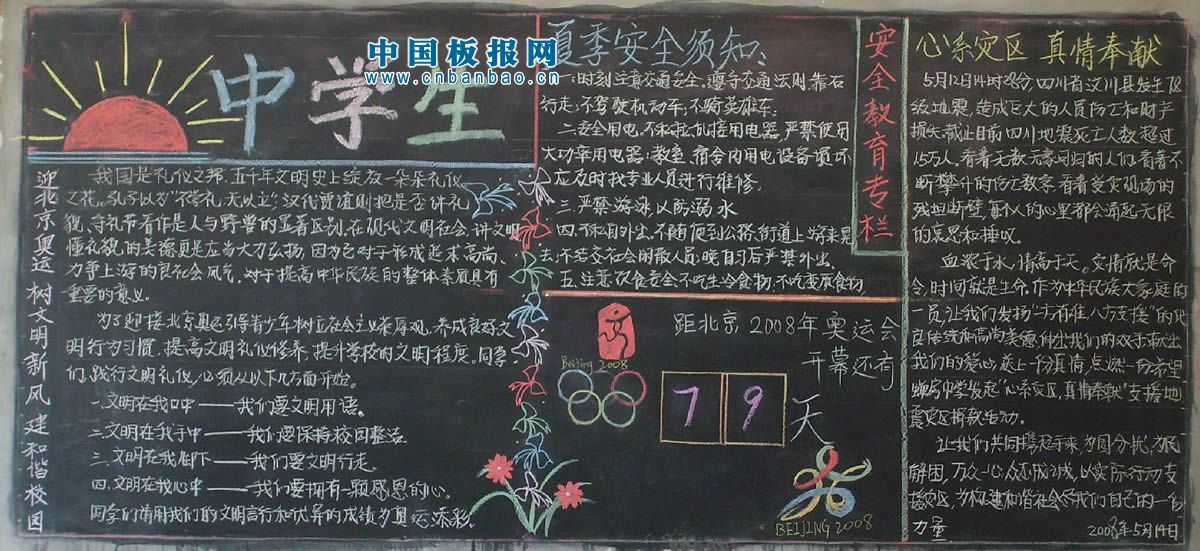 中国板报网
www.cnbanbao.cn
中学生
迎北京奥运 树文明新风 建和谐校园
我国是礼仪之邦,五千年文明史上绽放一朵朵礼仪
之花。孔子以为"不学礼,无以立";汉代贾谊则把是否讲礼
貌,守礼节看作是人与野兽的显著区别。在现代文明社会,讲文明
懂礼貌的美德更是应当大力弘扬,因为它对于形成追求高尚、
力争上游的良社会风气,对于提高中华民族的整体素质具有
重要的意义。
为了迎接北京奥运引导青少年树立社会主义荣辱观,养成良好文
明行为习惯,提高文明礼仪修养,提升学校的文明程度。同学
们,践行文明礼仪,必须从以下几方面开始。
一.文明在我口中——我们要文明用语。
二.文明在我手中——我们要保持校园整洁。
三.文明在我脚下——我们要文明行走。
四.文明在我心中——我们要拥有一颗感恩的心。
同学们,请用我们的文明言行和优异的成绩为奥运添彩。
夏季安全须知:
一.时刻注意交通安全,遵守交通法则,靠右
行走,不驾驶机动车,不骑英雄车。
二.安全用电,不私拉乱接用电器,严禁使用
大功率用电器;教室、宿舍内用电设备损坏
应及时找专业人员进行维修。
三.严禁游泳,以防溺水
四.不私自外出,不随便到公路、街道上游来晃
去;不结交社会闲散人员;晚自习后严禁外出
五.注意饮食安全不吃生冷食物,不吃变质食物
安全教育专栏
Beijing 2008
距北京2008年奥运会
开幕还有
79
天
BEIJING 2008
心系灾区 真情奉献
5月12日14时28分,四川省汶川县发生7.8
级地震,造成巨大的人员伤亡和财产
损失,截止目前四川地震死亡人数超过
1.5万人,看着无数无家可归的人们,看着不
断攀升的伤亡数字,看着受灾现场的
残垣断壁,每个人的心里都会涌起无限
的哀思和捶叹。
血浓于水,情高于天。灾情就是命
令,时间就是生命,作为中华民族大家庭的
一员,让我们发扬"一方有难,八方支援"的优
良传统和高尚美德,伸出我们的双手,献出
我们的爱心,送上一份真情,点燃一份希望
中学发起"心系灾区,真情奉献"支援地
震灾区捐款活动。
让我们共同携起手来,为国分忧,为民
解困,万众一心,众志成城,以实际行动支
援灾区,为构建和谐社会尽我们自己的一份
力量
2008年5月14日